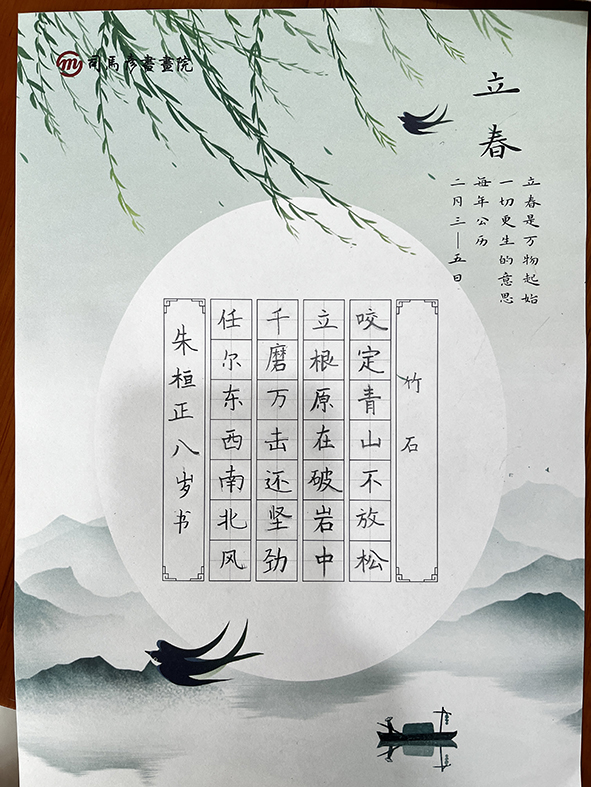 司馬彦書畫院
立春
立春是万物起始
一切更生的意思
每年公历
二月三—五日
竹石
咬定青山不放松
立根原在破岩中
千磨万击还坚劲
任尔东西南北风
朱桓正八岁书